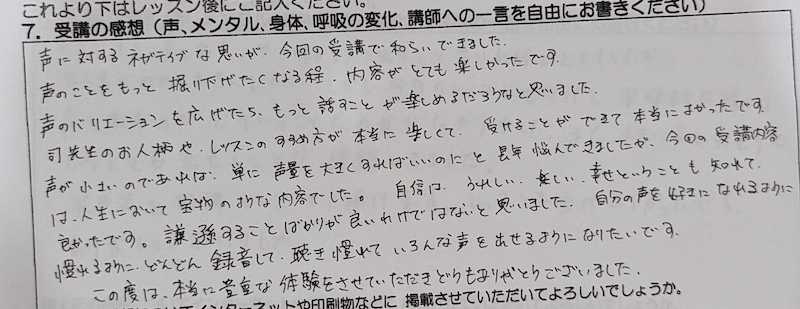 これより下はレッスン後にご記入ください。
7. 受講の感想（声、メンタル、身体、呼吸の変化、講師への一言を自由にお書きください）
声に対するネガティブな思いが、今回の受講で和らいできました。
声のことをもっと掘り下げたくなる程、内容がとても楽しかったです。
声のバリエーションを広げたら、もっと話すことが楽しめるだろうなと思いました。
司先生のお人柄や、レッスンのすすめ方が本当に楽しくて、受けることができて本当によかったです。
声が小さいのであれば、単に声量を大きくすればいいのにと長年悩んできましたが、今回の受講内容
は、人生において宝物のような内容でした。自信は、うれしい、楽しい、幸せということも知れて、
良かったです。謙遜することばかりが良いわけではないと思いました。自分の声を好きになれるように
慣れるように、どんどん録音して、聴き慣れていろんな声を出せるようになりたいです。
この度は、本当に貴重な体験をさせていただきどうもありがとうございました。
インターネットや印刷物などに掲載させていただいてよろしいでしょうか。